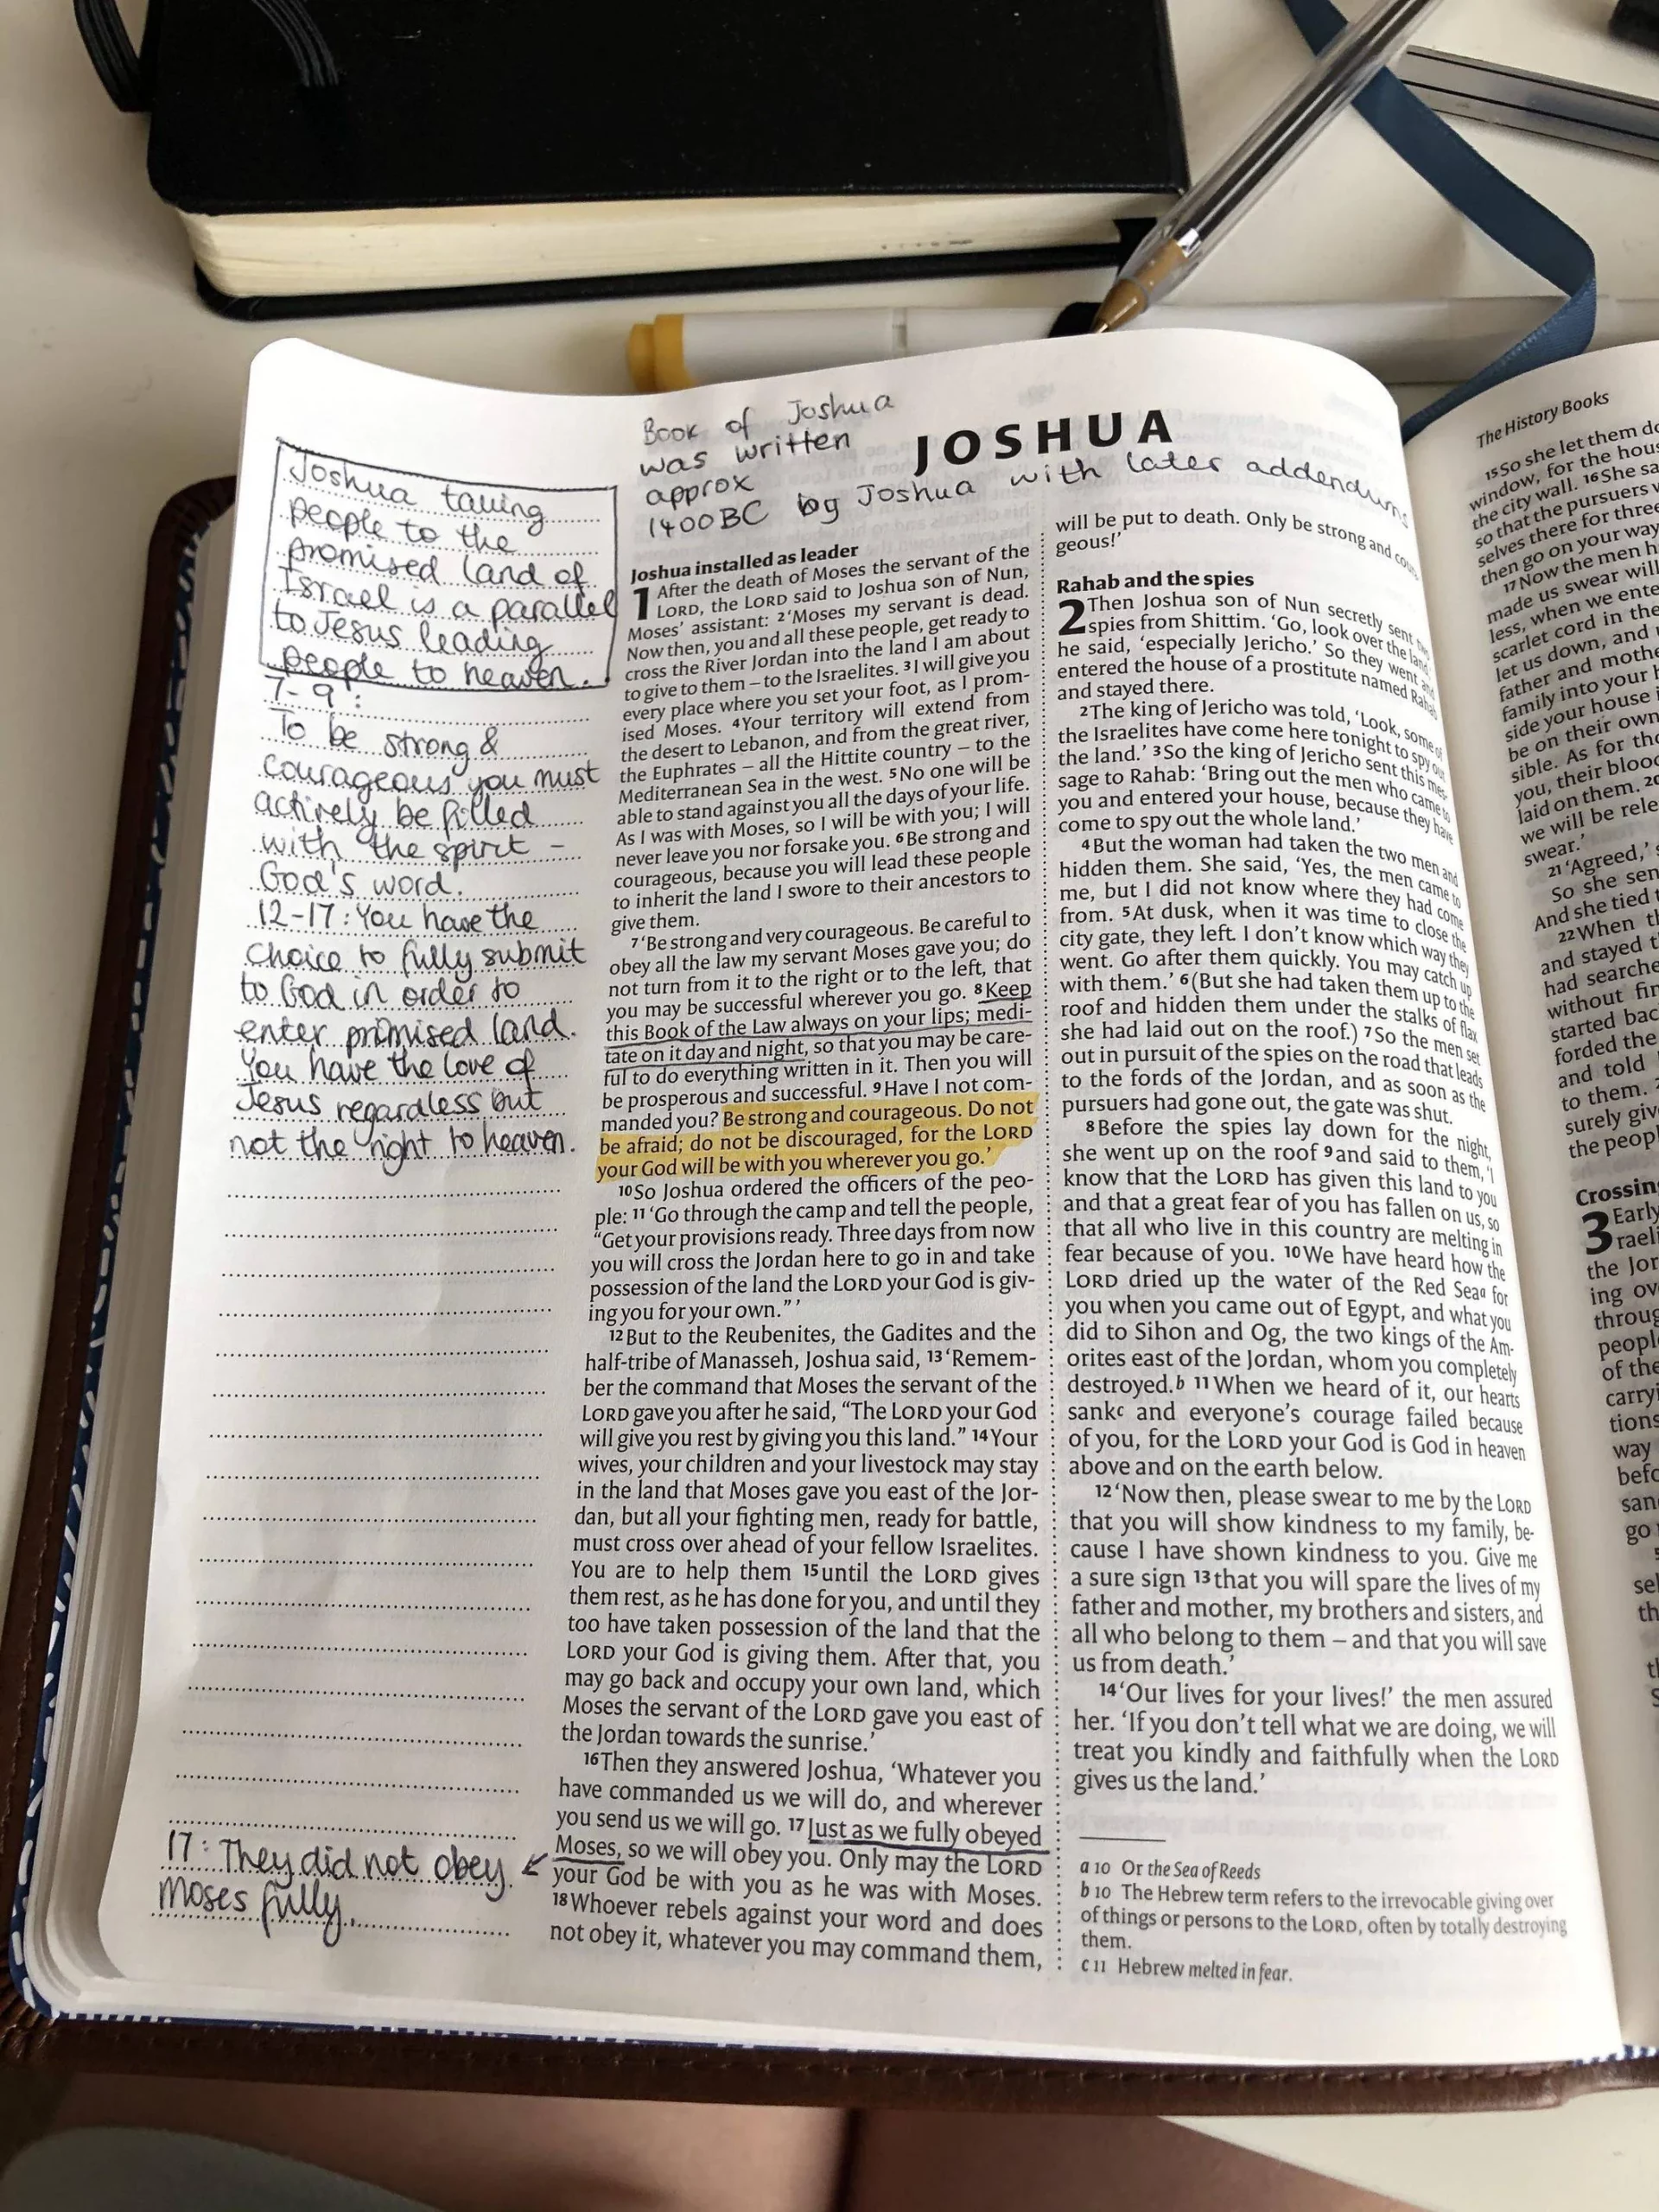 Book of Joshua
was written
approx
1400BC by Joshua with later addendums
JOSHUA
Joshua taking
people to the
promised land of
Israel is a parallel
to Jesus leading
people to heaven.
7-9:
To be strong &
courageous you must
actively be filled
with the spirit -
God's word.
12-17: You have the
choice to fully submit
to God in order to
enter promised land.
You have the love of
Jesus regardless but
not the right to heaven.
17: They did not obey
Moses fully.
Joshua installed as leader
1 After the death of Moses the servant of the
LORD, the LORD said to Joshua son of Nun,
Moses' assistant: 2 'Moses my servant is dead.
Now then, you and all these people, get ready to
cross the River Jordan into the land I am about
to give to them – to the Israelites. 3 I will give you
every place where you set your foot, as I prom-
ised Moses. 4 Your territory will extend from
the desert to Lebanon, and from the great river,
the Euphrates – all the Hittite country – to the
Mediterranean Sea in the west. 5 No one will be
able to stand against you all the days of your life.
As I was with Moses, so I will be with you; I will
never leave you nor forsake you. 6 Be strong and
courageous, because you will lead these people
to inherit the land I swore to their ancestors to
give them.
7 'Be strong and very courageous. Be careful to
obey all the law my servant Moses gave you; do
not turn from it to the right or to the left, that
you may be successful wherever you go. 8 Keep
this Book of the Law always on your lips; medi-
tate on it day and night, so that you may be care-
ful to do everything written in it. Then you will
be prosperous and successful. 9 Have I not com-
manded you? Be strong and courageous. Do not
be afraid; do not be discouraged, for the LORD
your God will be with you wherever you go.'
10 So Joshua ordered the officers of the peo-
ple: 11 'Go through the camp and tell the people,
"Get your provisions ready. Three days from now
you will cross the Jordan here to go in and take
possession of the land the LORD your God is giv-
ing you for your own." '
12 But to the Reubenites, the Gadites and the
half-tribe of Manasseh, Joshua said, 13 'Remem-
ber the command that Moses the servant of the
LORD gave you after he said, "The LORD your God
will give you rest by giving you this land." 14 Your
wives, your children and your livestock may stay
in the land that Moses gave you east of the Jor-
dan, but all your fighting men, ready for battle,
must cross over ahead of your fellow Israelites.
You are to help them 15 until the LORD gives
them rest, as he has done for you, and until they
too have taken possession of the land that the
LORD your God is giving them. After that, you
may go back and occupy your own land, which
Moses the servant of the LORD gave you east of
the Jordan towards the sunrise.'
16 Then they answered Joshua, 'Whatever you
have commanded us we will do, and wherever
you send us we will go. 17 Just as we fully obeyed
Moses, so we will obey you. Only may the LORD
your God be with you as he was with Moses.
18 Whoever rebels against your word and does
not obey it, whatever you may command them,
will be put to death. Only be strong and coura-
geous!'
Rahab and the spies
2 Then Joshua son of Nun secretly sent two
spies from Shittim. 'Go, look over the land,'
he said, 'especially Jericho.' So they went and
entered the house of a prostitute named Rahab
and stayed there.
2 The king of Jericho was told, 'Look, some of
the Israelites have come here tonight to spy out
the land.' 3 So the king of Jericho sent this mes-
sage to Rahab: 'Bring out the men who came to
you and entered your house, because they have
come to spy out the whole land.'
4 But the woman had taken the two men and
hidden them. She said, 'Yes, the men came to
me, but I did not know where they had come
from. 5 At dusk, when it was time to close the
city gate, they left. I don't know which way they
went. Go after them quickly. You may catch up
with them.' 6 (But she had taken them up to the
roof and hidden them under the stalks of flax
she had laid out on the roof.) 7 So the men set
out in pursuit of the spies on the road that leads
to the fords of the Jordan, and as soon as the
pursuers had gone out, the gate was shut.
8 Before the spies lay down for the night,
she went up on the roof 9 and said to them, 'I
know that the LORD has given this land to you
and that a great fear of you has fallen on us, so
that all who live in this country are melting in
fear because of you. 10 We have heard how the
LORD dried up the water of the Red Sea a for
you when you came out of Egypt, and what you
did to Sihon and Og, the two kings of the Am-
orites east of the Jordan, whom you completely
destroyed. b 11 When we heard of it, our hearts
sank c and everyone's courage failed because
of you, for the LORD your God is God in heaven
above and on the earth below.
12 'Now then, please swear to me by the LORD
that you will show kindness to my family, be-
cause I have shown kindness to you. Give me
a sure sign 13 that you will spare the lives of my
father and mother, my brothers and sisters, and
all who belong to them – and that you will save
us from death.'
14 'Our lives for your lives!' the men assured
her. 'If you don't tell what we are doing, we will
treat you kindly and faithfully when the LORD
gives us the land.'
a 10 Or the Sea of Reeds
b 10 The Hebrew term refers to the irrevocable giving over
of things or persons to the LORD, often by totally destroying
them.
c 11 Hebrew melted in fear.
The History Books
15 So she let them
window, for the
the city wall. 16 She
so that the pursuers
selves there for three
then go on your way
17 Now the men
made us swear will
less, when we
scarlet cord in the
let us down, and
father and
family into your
side your house
be on their own
sible. As for
you, their
laid on them. 20
we will be
swear.'
21 'Agreed,'
So she
And she tied
22 When
and stayed
had
without
started
forded the
and told
to them.
surely
the
3 Early
the